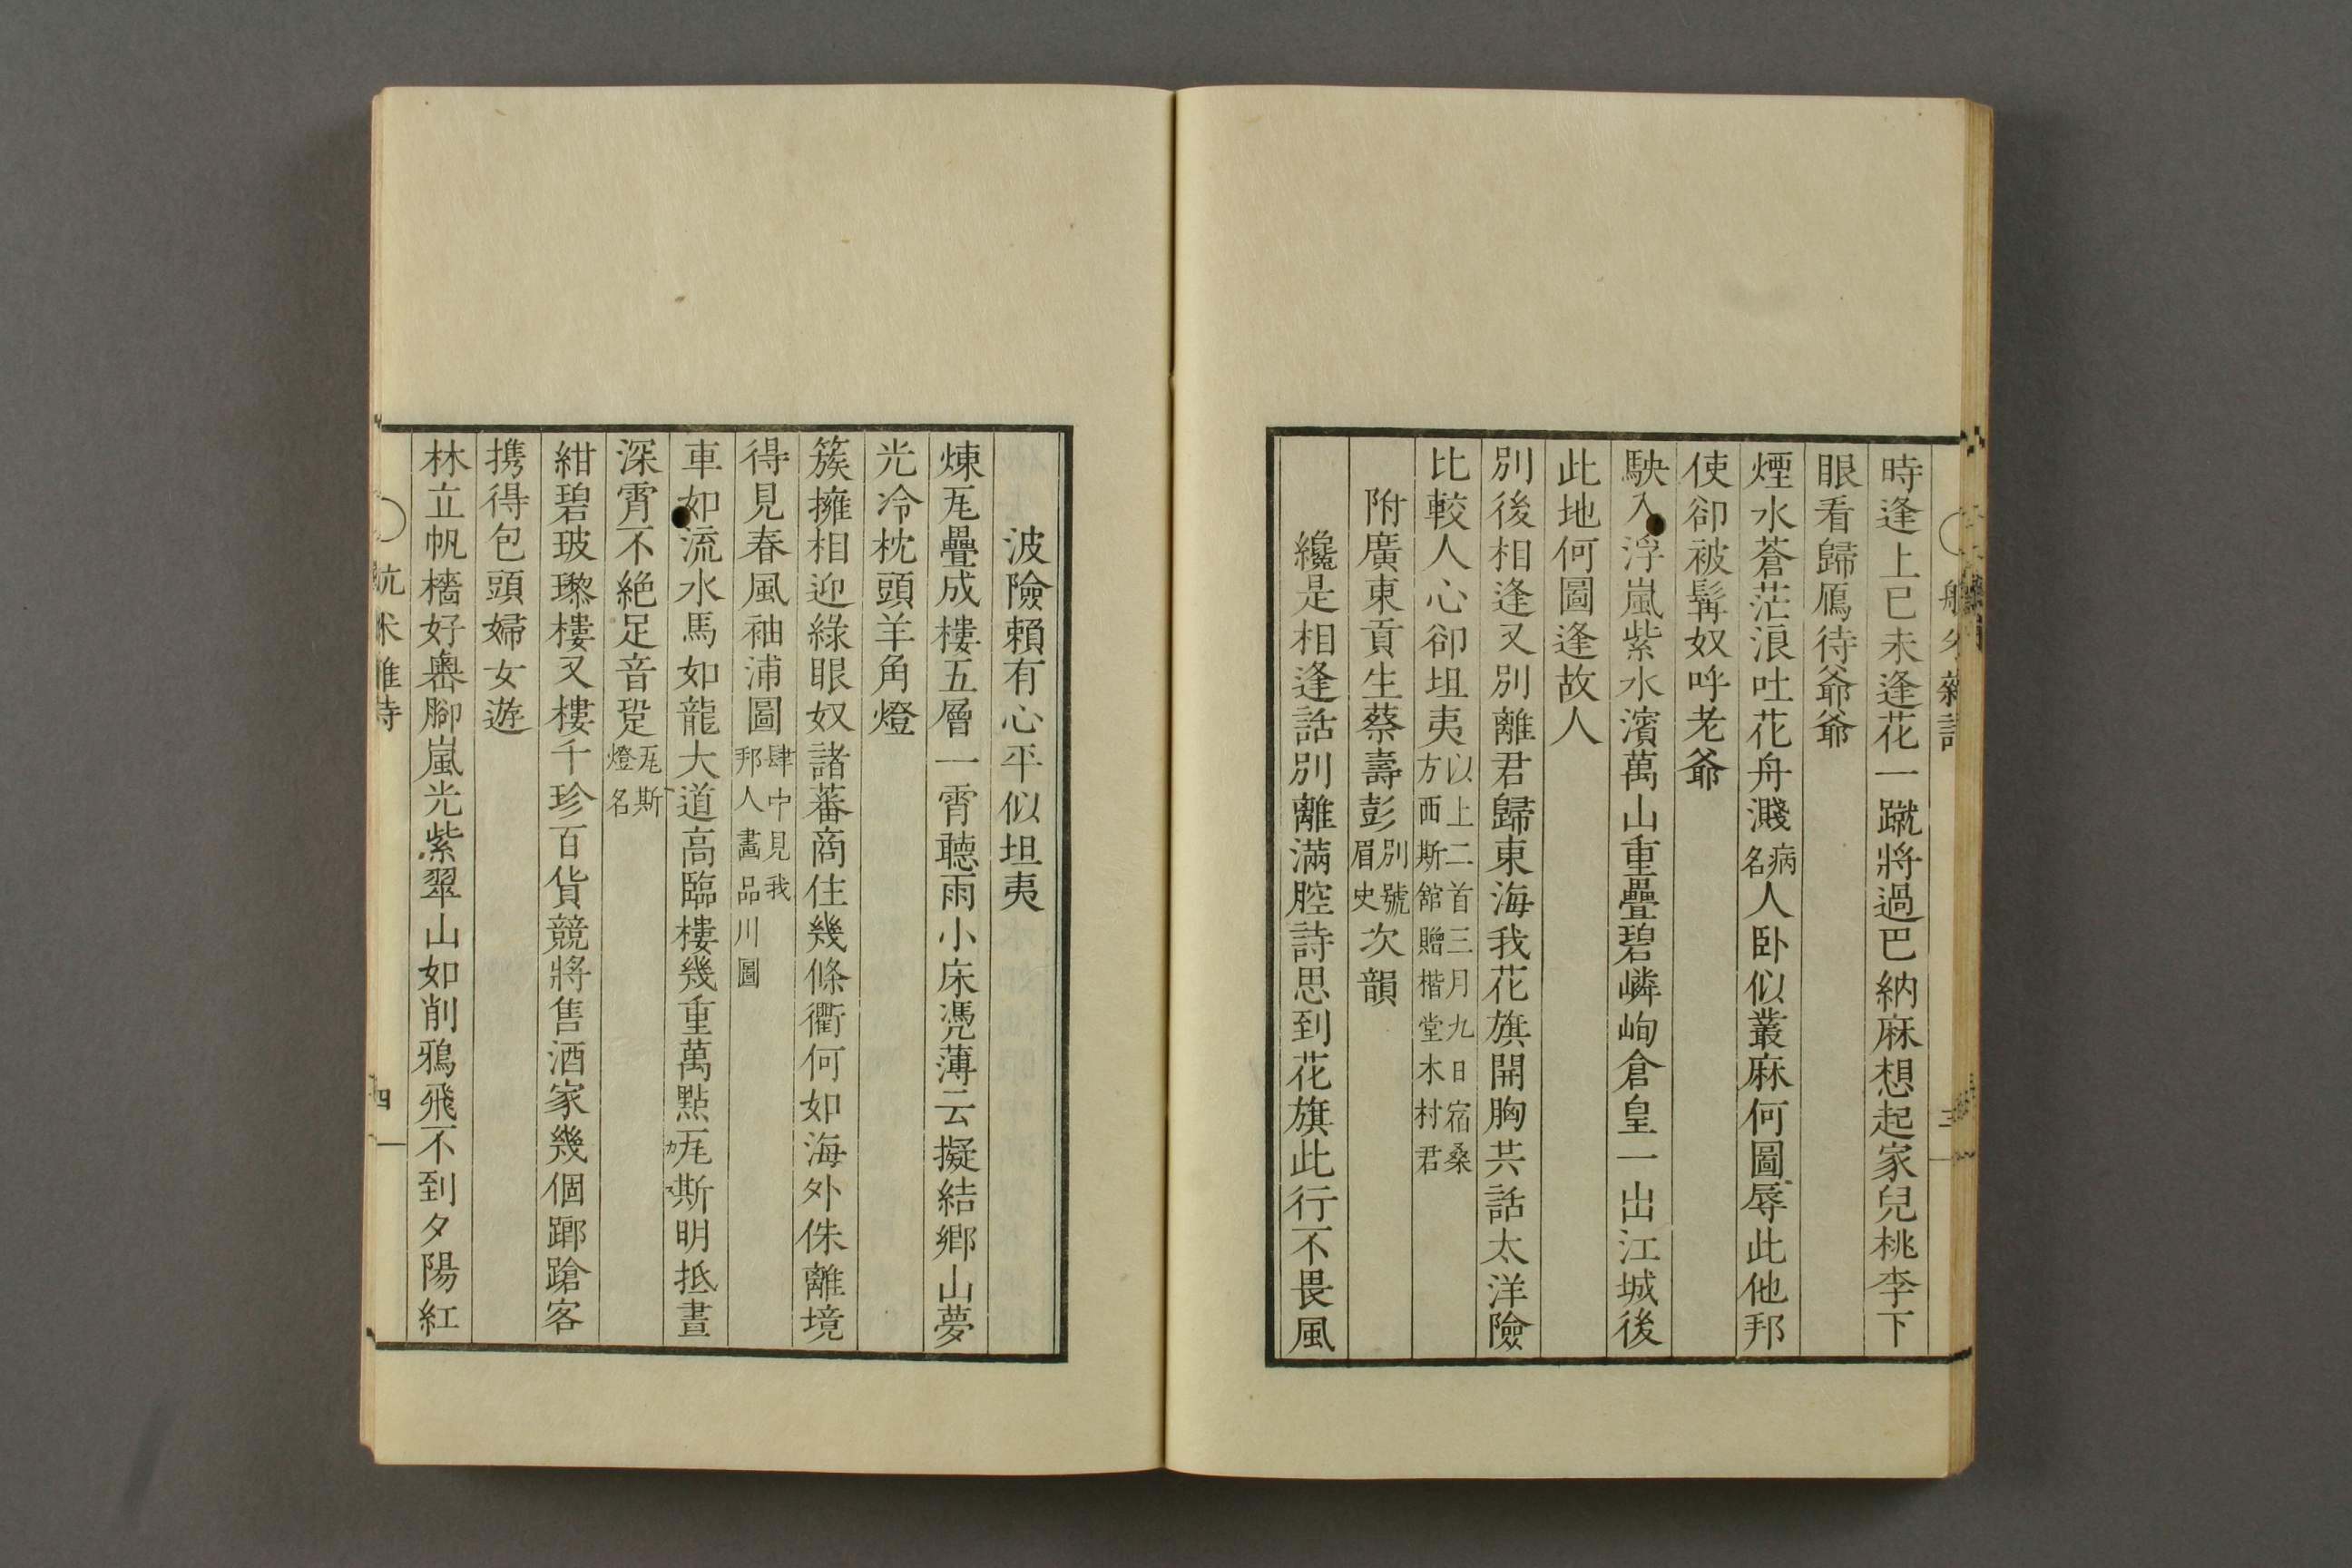 時逢上巳未逢花一蹴將過巴納麻想起家兒桃李下
眼看歸鴈待爺爺
煙水蒼茫浪吐花舟濺病名人臥似叢麻何圖辱此他邦
使卻被髯奴呼老爺
駛入浮嵐紫水濱萬山重疊碧嶙峋倉皇一出江城後
此地何圖逢故人
別後相逢又別離君歸東海我花旗開胸共話太洋險
比較人心卻坦夷以上二首三月九日宿桑方西斯館贈楷堂木村君
附廣東貢生蔡壽彭別號眉史次韻
纔是相逢話別離滿腔詩思到花旗此行不畏風
波險賴有心平似坦夷
煉瓦疊成樓五層一霄聽雨小床凭薄云擬結鄉山夢
光冷枕頭羊角燈
簇擁相迎綠眼奴諸蕃商住幾條衢何如海外侏離境
得見春風袖浦圖肆中見我邦人畫品川圖
車如流水馬如龍大道高臨樓幾重萬點瓦斯明抵晝
深霄不絕足音跫瓦斯燈名
紺碧玻瓈樓又樓千珍百貨競將售酒家幾個踯蹌客
携得包頭婦女遊
林立帆檣好嶴腳嵐光紫翠山如削鴉飛不到夕陽紅
四